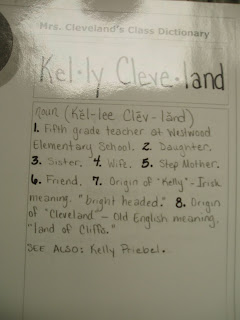 Mrs. Cleveland's Class Dictionary
Kel·ly Cleve·land
noun (Kĕl-lee Clēv-lănd)
1. Fifth grade teacher at Westwood
Elementary School. 2. Daughter.
3. Sister. 4. Wife. 5. Step Mother.
6. Friend. 7. Origin of "Kelly" - Irish
meaning, "bright headed." 8. Origin
of "Cleveland" - Old English meaning,
"land of Cliffs."
SEE ALSO: Kelly Priebel.